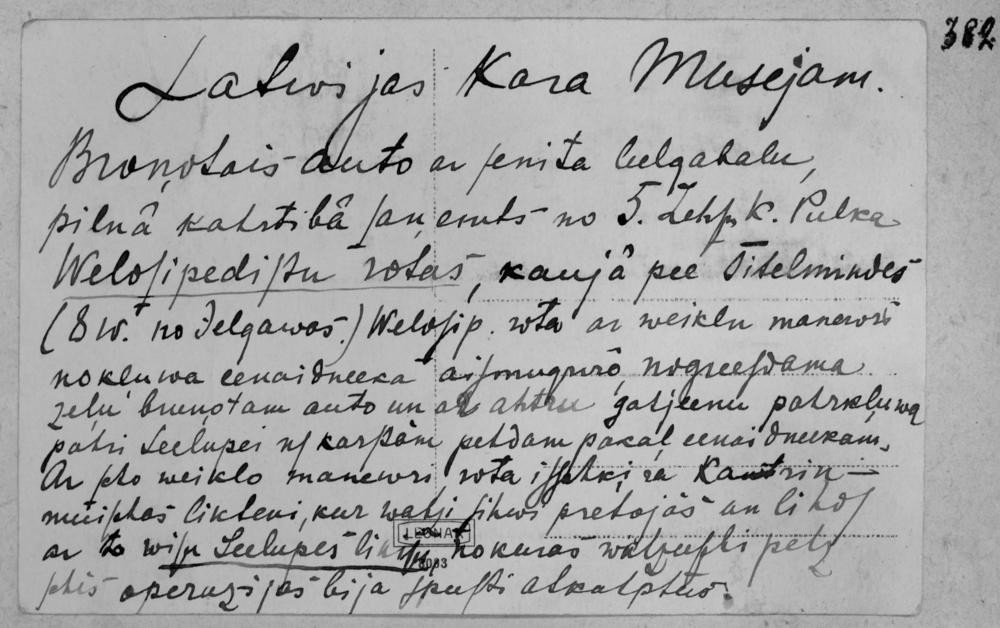 382
Latwijas Kara Musejam.
Broņotais auto ar senita lelgabalu,
pilnâ kahrtibâ saņemts no 5. Zehsu K. Pulka
Welosipedistu rotas, kaujâ pee Titelmindes
(8 w. no Jelgawas.) Welosip. rota ar weiklu manewri
nokluwa eenaidneeka aismugurê, nogreesdama
zeļu bruņotam auto un ar ahtru gahjeenu pahrkļuwa
pahri Leelupei us karstâm pehdam pakaļ eenaidneekam.
Ar sho weiklo manewri rota isschķira
muischas likteni, kur wahzi sihwi pretojâs un lihds
ar to wisu Leelupes liniju, no kuras wahzeeschi pehz
schis operazijas bija speesti atkahptees.
LEONAR